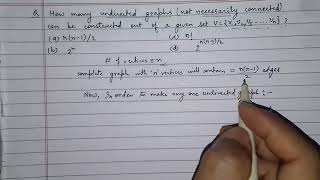 Q. How many undirected graphs (not necessarily connected)
can be constructed out of a given set V={V₁,V₂,V₃,...,Vₙ}?
(a) n(n-1)/2 (c) n!
(b) 2ⁿ (d) 2^n(n-1)/2
# of vertices = n
complete graph with 'n' vertices will contain = n(n-1)/2 edges
Now, In order to make any one undirected graph :-